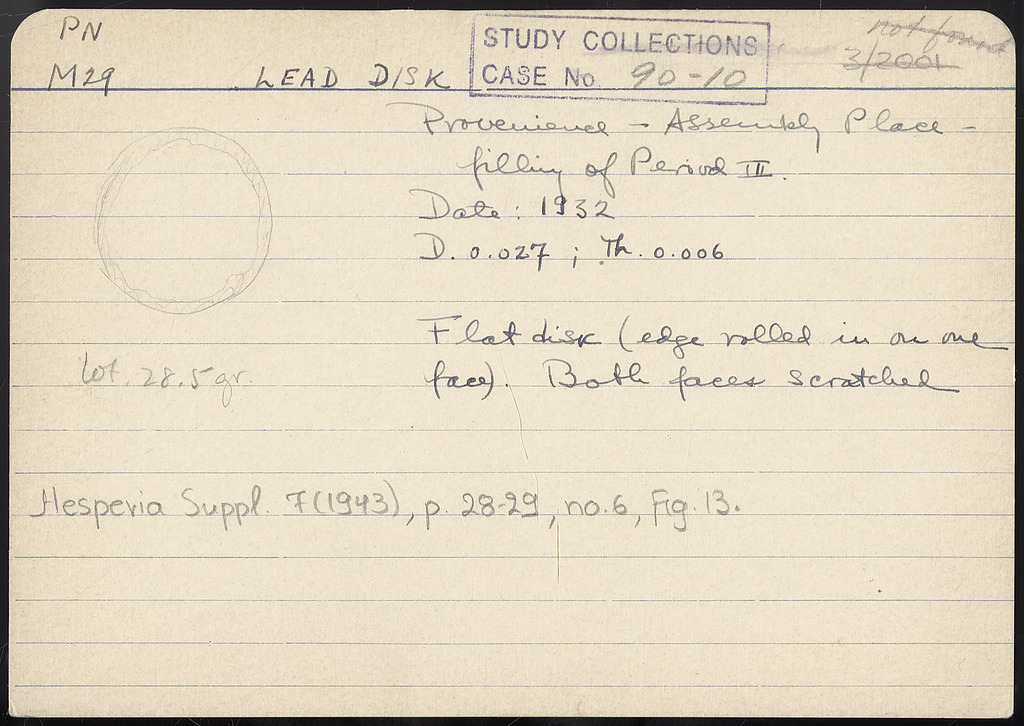 PN
M29
LEAD DISK
STUDY COLLECTIONS
CASE No. 90-10
not found
3/2001
Provenience - Assembly Place -
filling of Period III.
Date: 1932
D. 0.027 ; Th. 0.006
Flat disk (edge rolled in on one
face). Both faces scratched
Wt. 28.5 gr.
Hesperia Suppl. 7(1943), p. 28-29, no.6, Fig. 13.